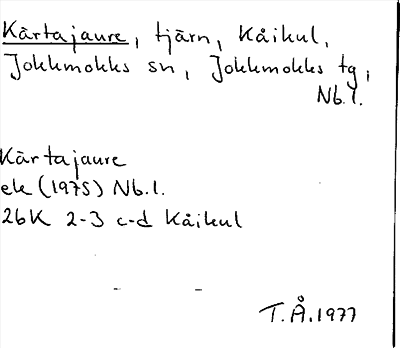 Kårtajaure, tjärn, Kåikul,
Jokkmokks sn, Jokkmokks tg,
Nb.l.
Kårtajaure
ek (1975) Nb.l.
26K 2-3 c-d Kåikul
T.Å.1977